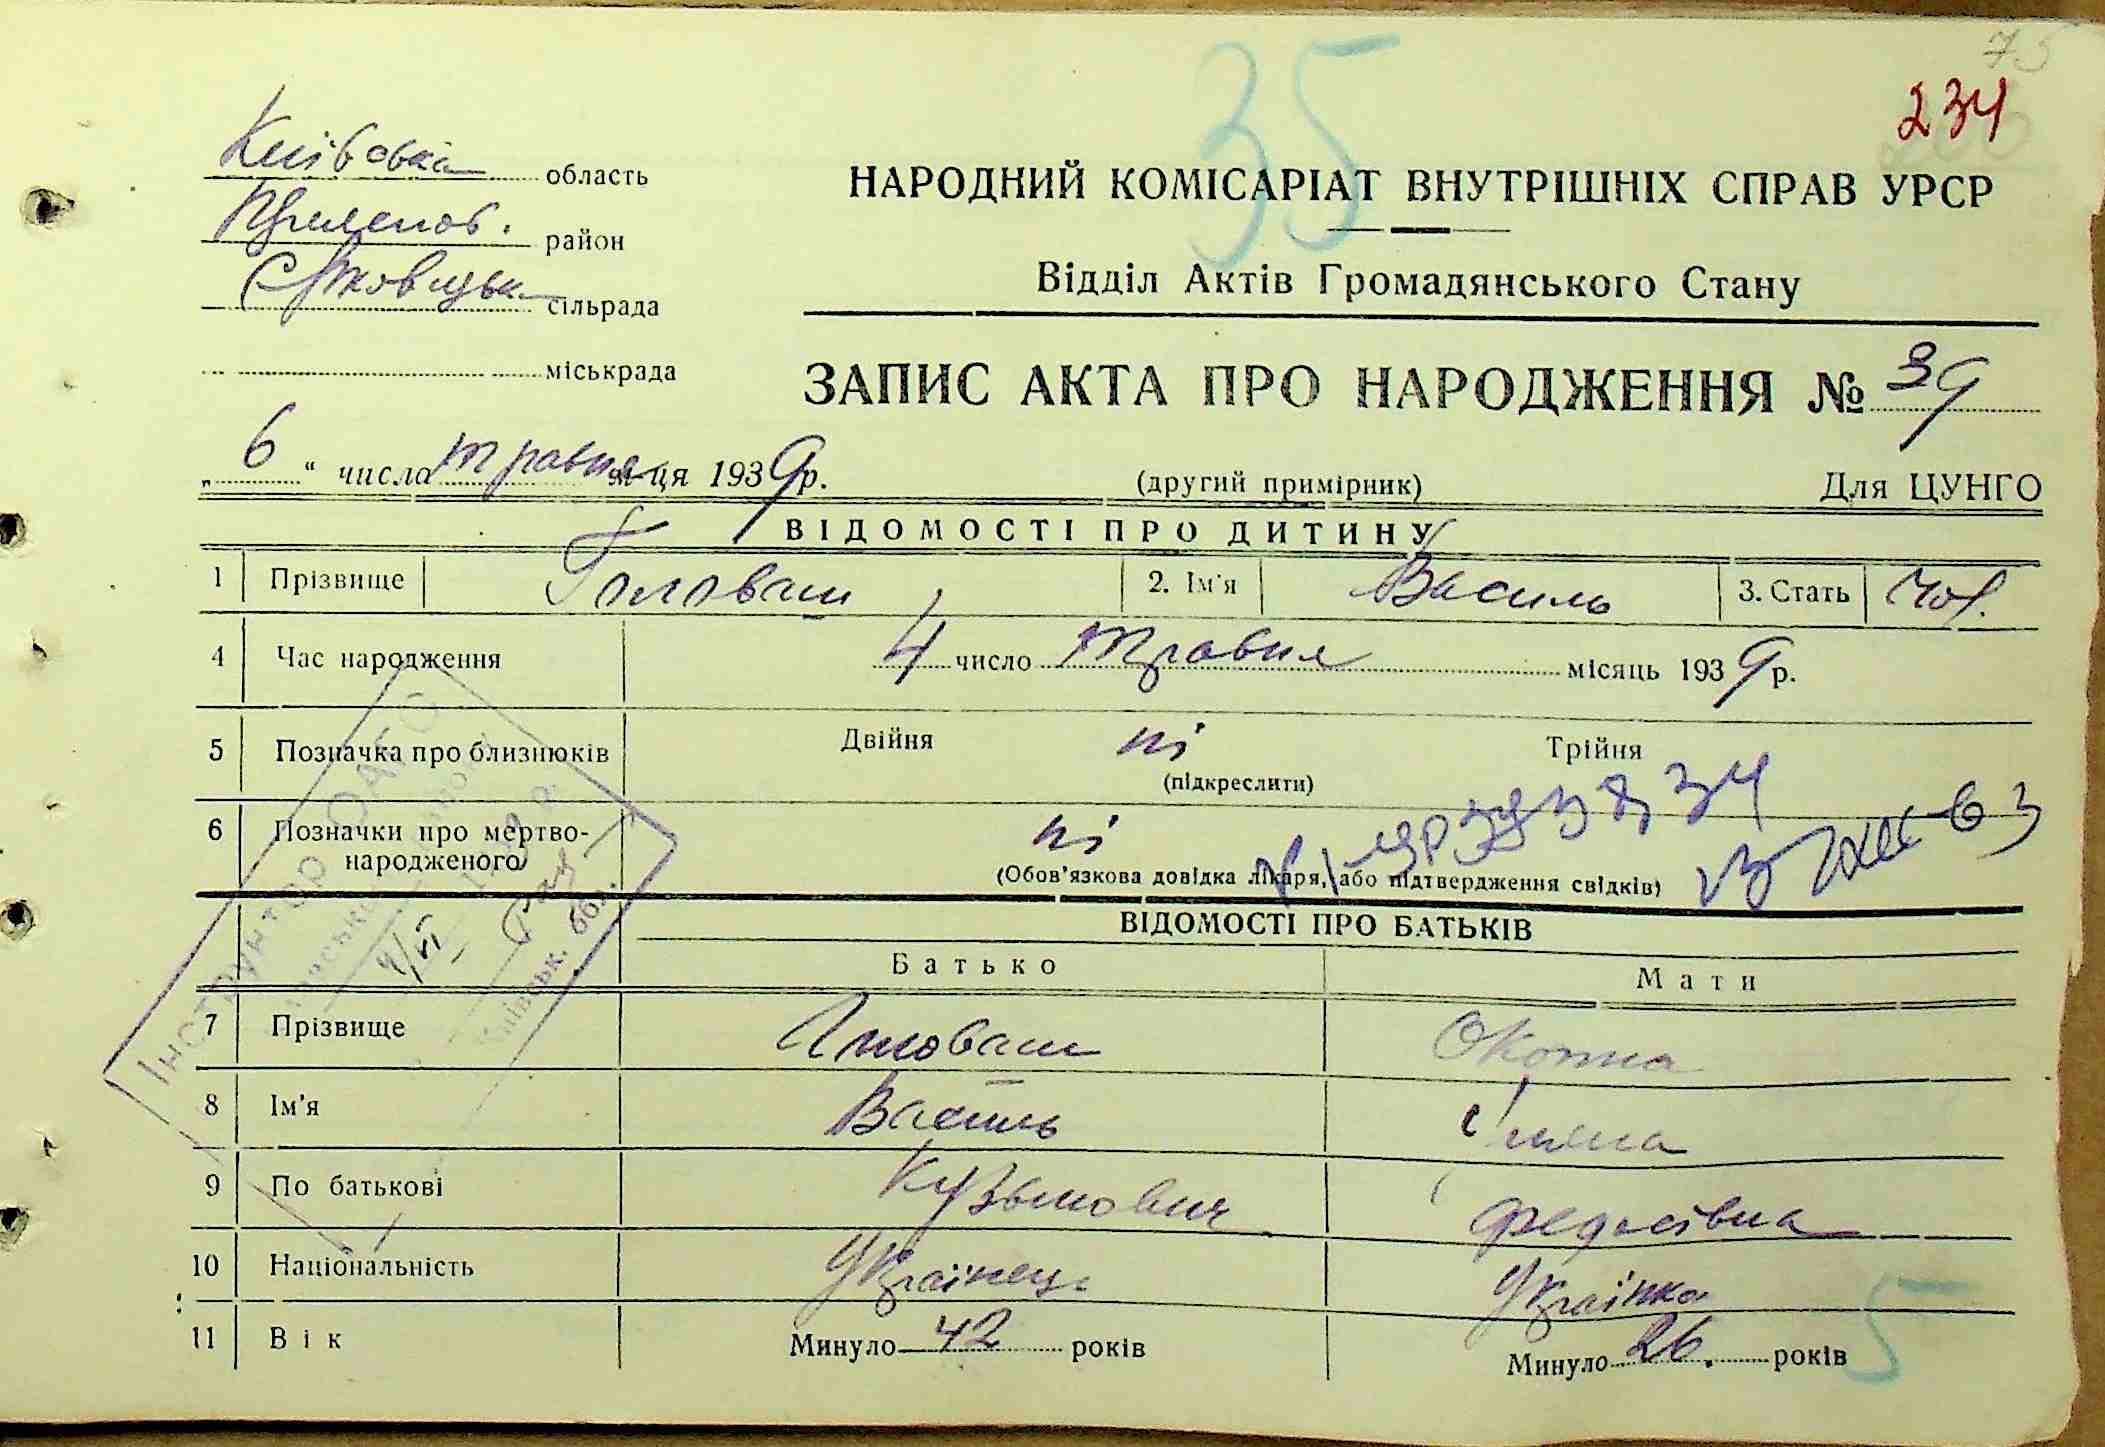 75
35
234
Київська область
район
сільрада
міськрада
НАРОДНИЙ КОМІСАРІАТ ВНУТРІШНІХ СПРАВ УРСР
Відділ Актів Громадянського Стану
ЗАПИС АКТА ПРО НАРОДЖЕННЯ № 39
„ 6 “ числа травня м-ця 1939 р.
(другий примірник)
Для ЦУНГО
ВІДОМОСТІ ПРО ДИТИНУ
1 Прізвище Головаш 2. Ім'я Василь 3. Стать Чол.
4 Час народження 4 число травня місяць 1939 р.
5 Позначка про близнюків Двійня ні Трійня
(підкреслити)
6 Позначки про мертво-
народженого ні
(Обов'язкова довідка лікаря, або підтвердження свідків)
Інструктор ОАГС
ВІДОМОСТІ ПРО БАТЬКІВ
Батько Мати
7 Прізвище Головаш
8 Ім'я Василь Уляна
9 По батькові Кузьмович Федосівна
10 Національність Українець Українка
11 Вік Минуло 42 років Минуло 26. років
5